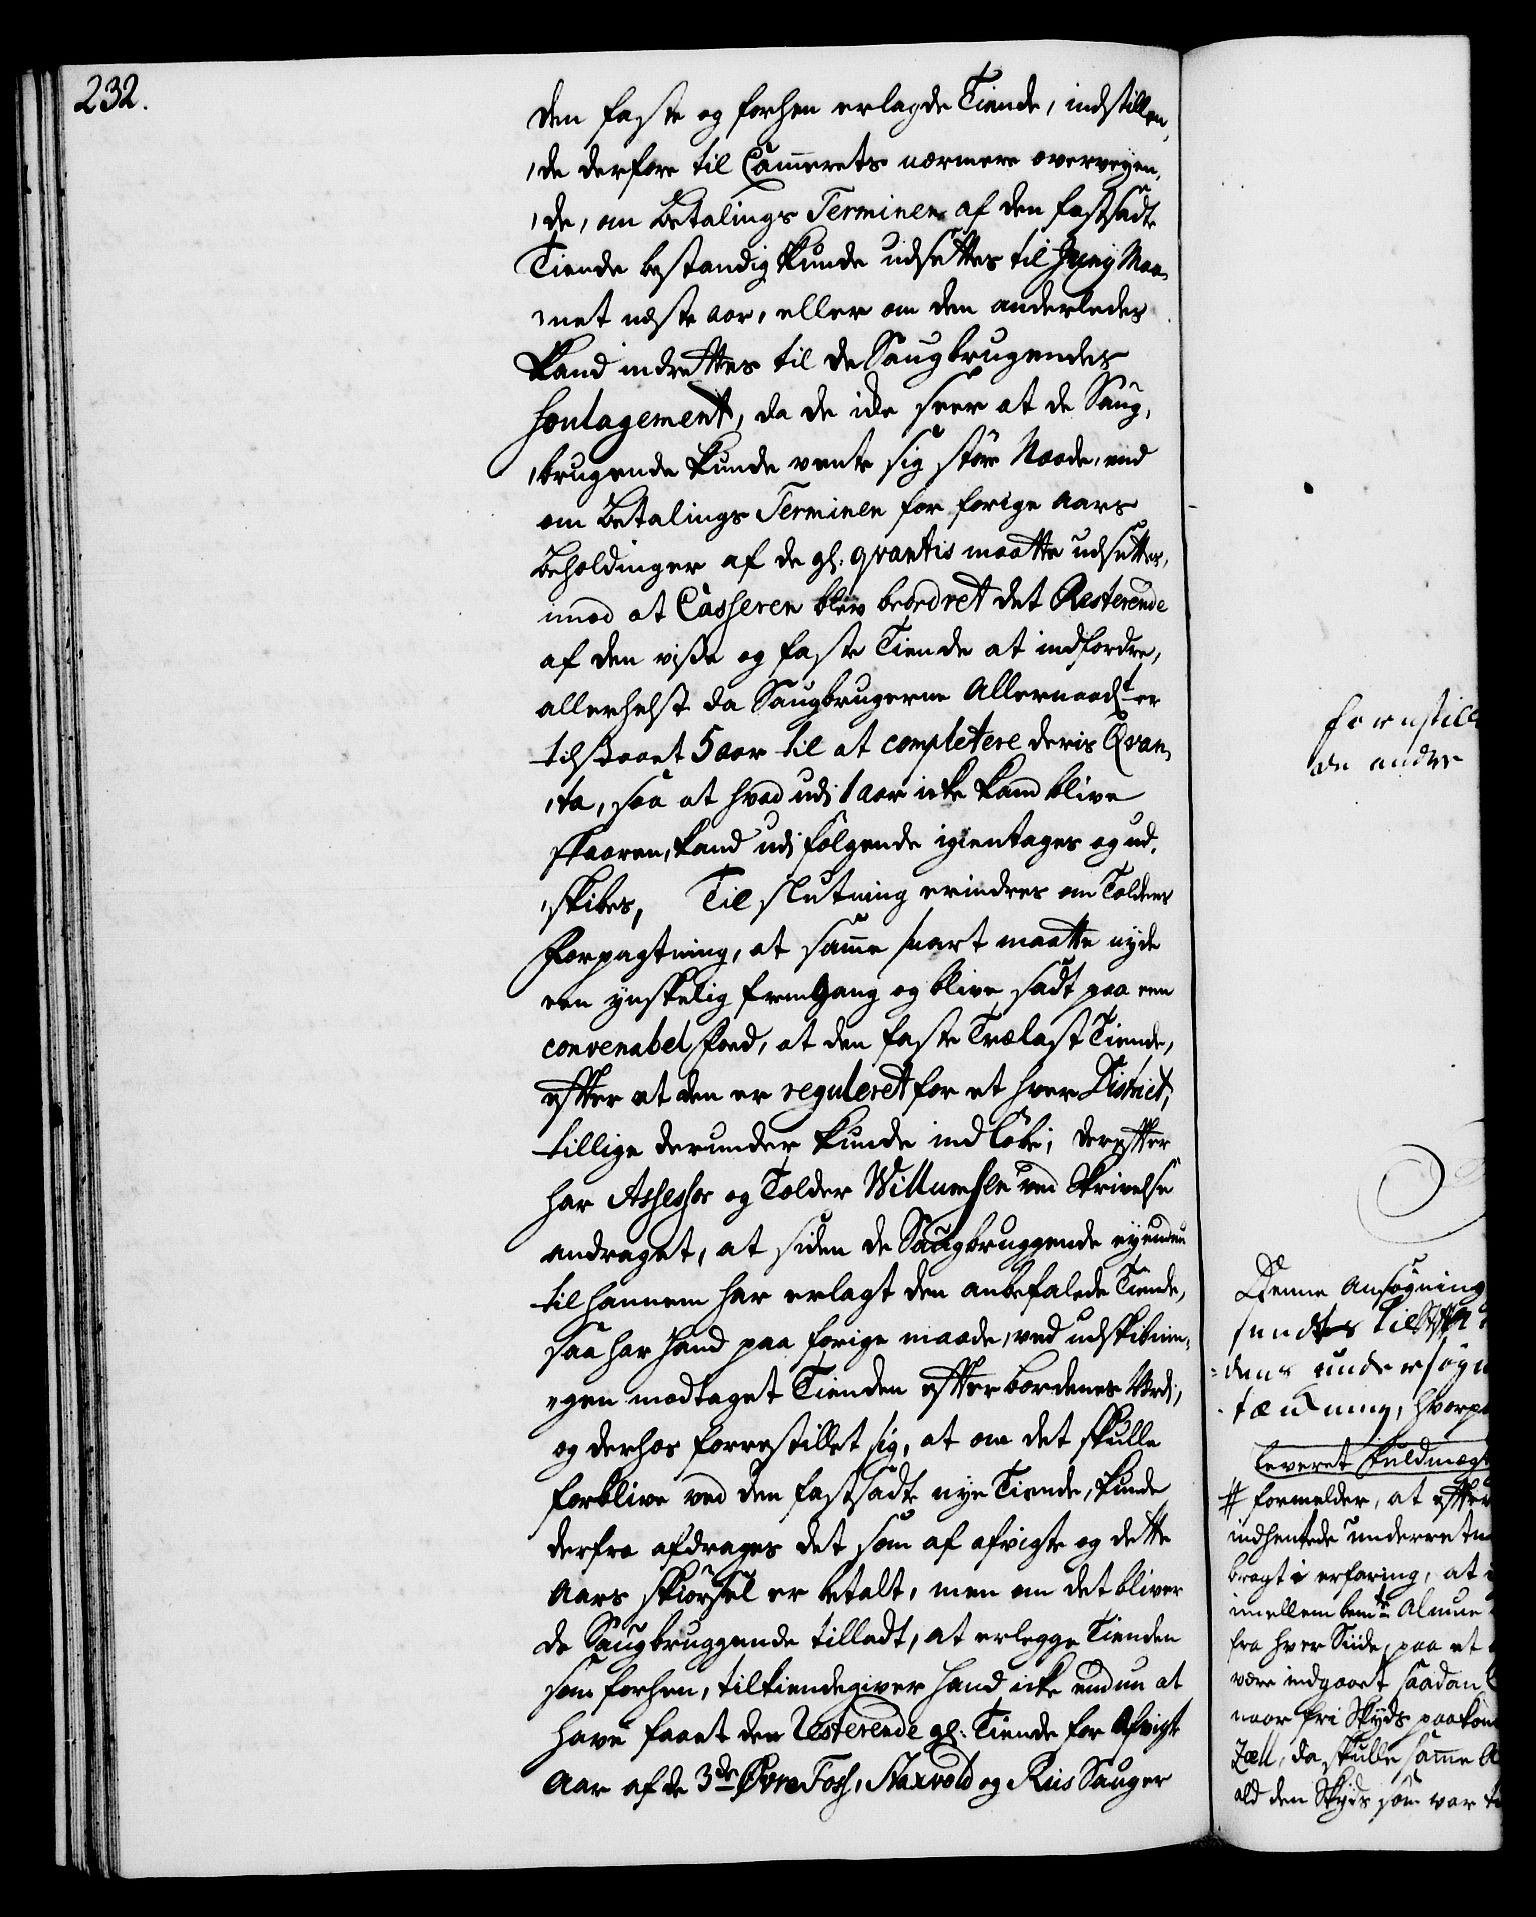 232.
den faste og forhen erlagde Tiende, indstillen,
,de derfore til Cammerets nærmere overveyen,
,de, om Betalings Terminen af den fastsadte
Tiende bestandig kunde udsættes til Junij Maa,
,net næste aar, eller om den anderledes
kand indrettes til de Saugbrugendes
Soulagement, da de icke seer at de Saug,
,brugende kunde vente sig større Naade, end
om Betalings Terminen for forige Aars
Beholdinger af de gl: qvantis maatte udsættes,
imod at Casseren blev beordret det Resterende
af den visse og faste Tiende at indfordre,
allerhelst da Saugbrugerne Allernaadt er
tilstaaet 5 aar til at completere deris Qvan,
,ta, saa at hvad udi 1 aar icke kand blive
skaaren, kand udi følgende igientages og ud,
,skibes, Til slutning erindres om Toldens
Forpagtning, at samme snart maatte nyde
een ynskelig fremgang og blive sadt paa een
convenabel Foed, at den faste Trælast Tiende,
efter at den er reguleret for et hver District,
tillige derunder kunde indløbe; derefter
har Assessor og Tolder Willumsen ved Skrivelse
andraget, at siden de Saugbruggende eyendnu
til hannem har erlagt den anbefalede Tiende,
saa har hand paa forige maade, ved udskibnin,
,gen modtaget Tienden efter bordenes Værdi,
og derhos forrestillet sig, at om det skulle
forblive ved den fastsadte nye Tiende, kunde
derfra afdrages det som af afvigte og dette
Aars skiørsel er betalt, men om det bliver
de Saugbruggende tilladt, at erlegge Tienden
som forhen, tilkiendegiver hand icke endnu at
have faaet den Resterende gl: Tiende for Afvigte
Aar af de 3de Øvre Foss, Haxvold og Riis Sauger
forestill
de andre
Denne Ansøgning
sendtes til Stift
-dens undersøgn
tænkning, hvorp
leveret fuldmægt
# formelder, at efter
indhentede underretn
bragt i erfaring, at
imellem bemte Almue
fra hver Siide, paa et
være indgaaet saadan
naar fri Skyds paakom
Zell, da skulle samme A
ald den Skyds som var